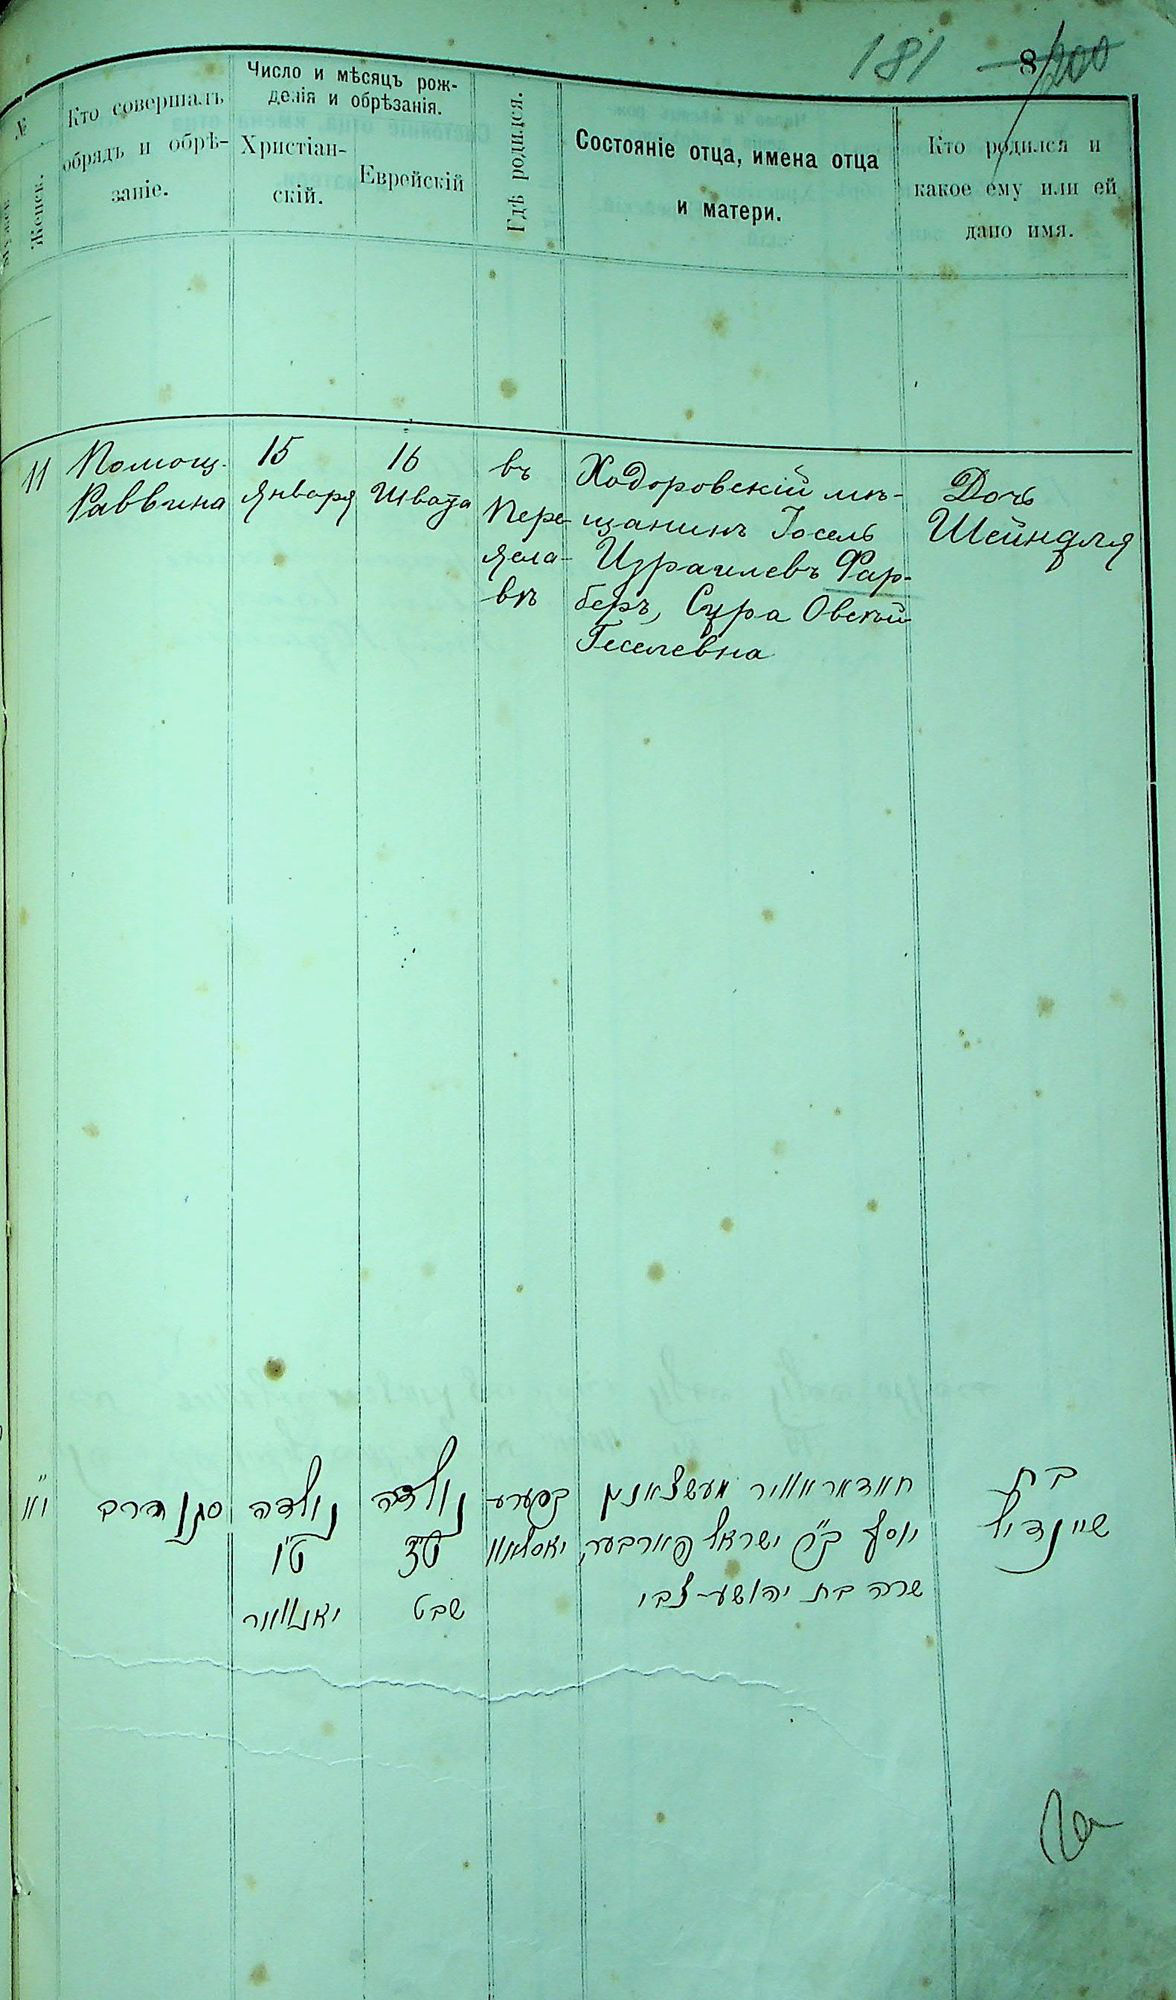 181 8/200
№
Мужск.
Женск.
Кто совершалъ
обрядъ и обрѣ-
заніе.
Число и мѣсяцъ рож-
денія и обрѣзанія.
Христіан-
скій.
Еврейскій
Гдѣ родился.
Состояніе отца, имена отца
и матери.
Кто родился и
какое ему или ей
дано имя.
11
Помощ.
Раввина
15
Января
16
Швата
въ
Пере-
ясла-
вѣ
Ходоровскій мѣ-
щанинъ Іосель
Израилевъ Фар-
беръ, Сура Овсей-
Геселевна
Дочь
Шейндля
יא
סגן הרב
נולדה
ט״ו
יאנוואר
נולדה
ט״ז
שבט
בפערע
יאסלאוו
חאדאראוויר מעשצאנין
יוסף ב״ר ישראל פארבער,
שרה בת יהושע-צבי
בת
שיינדיל